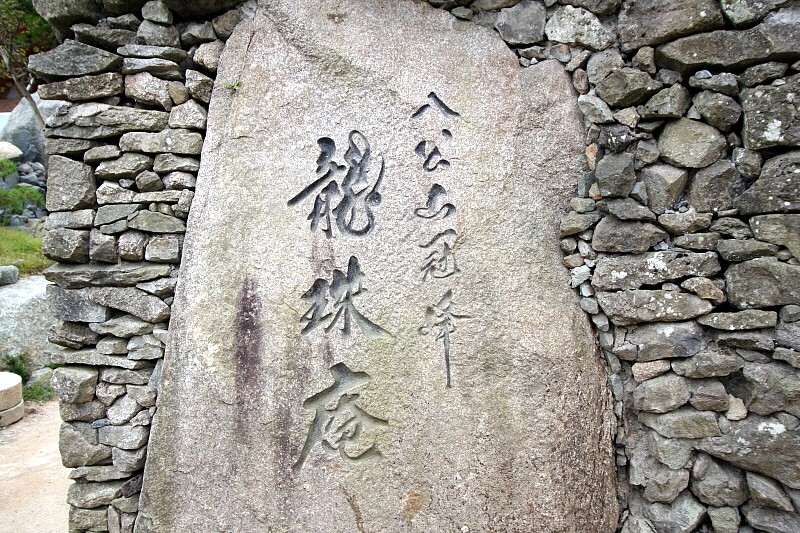 八公山冠峰
龍珠庵